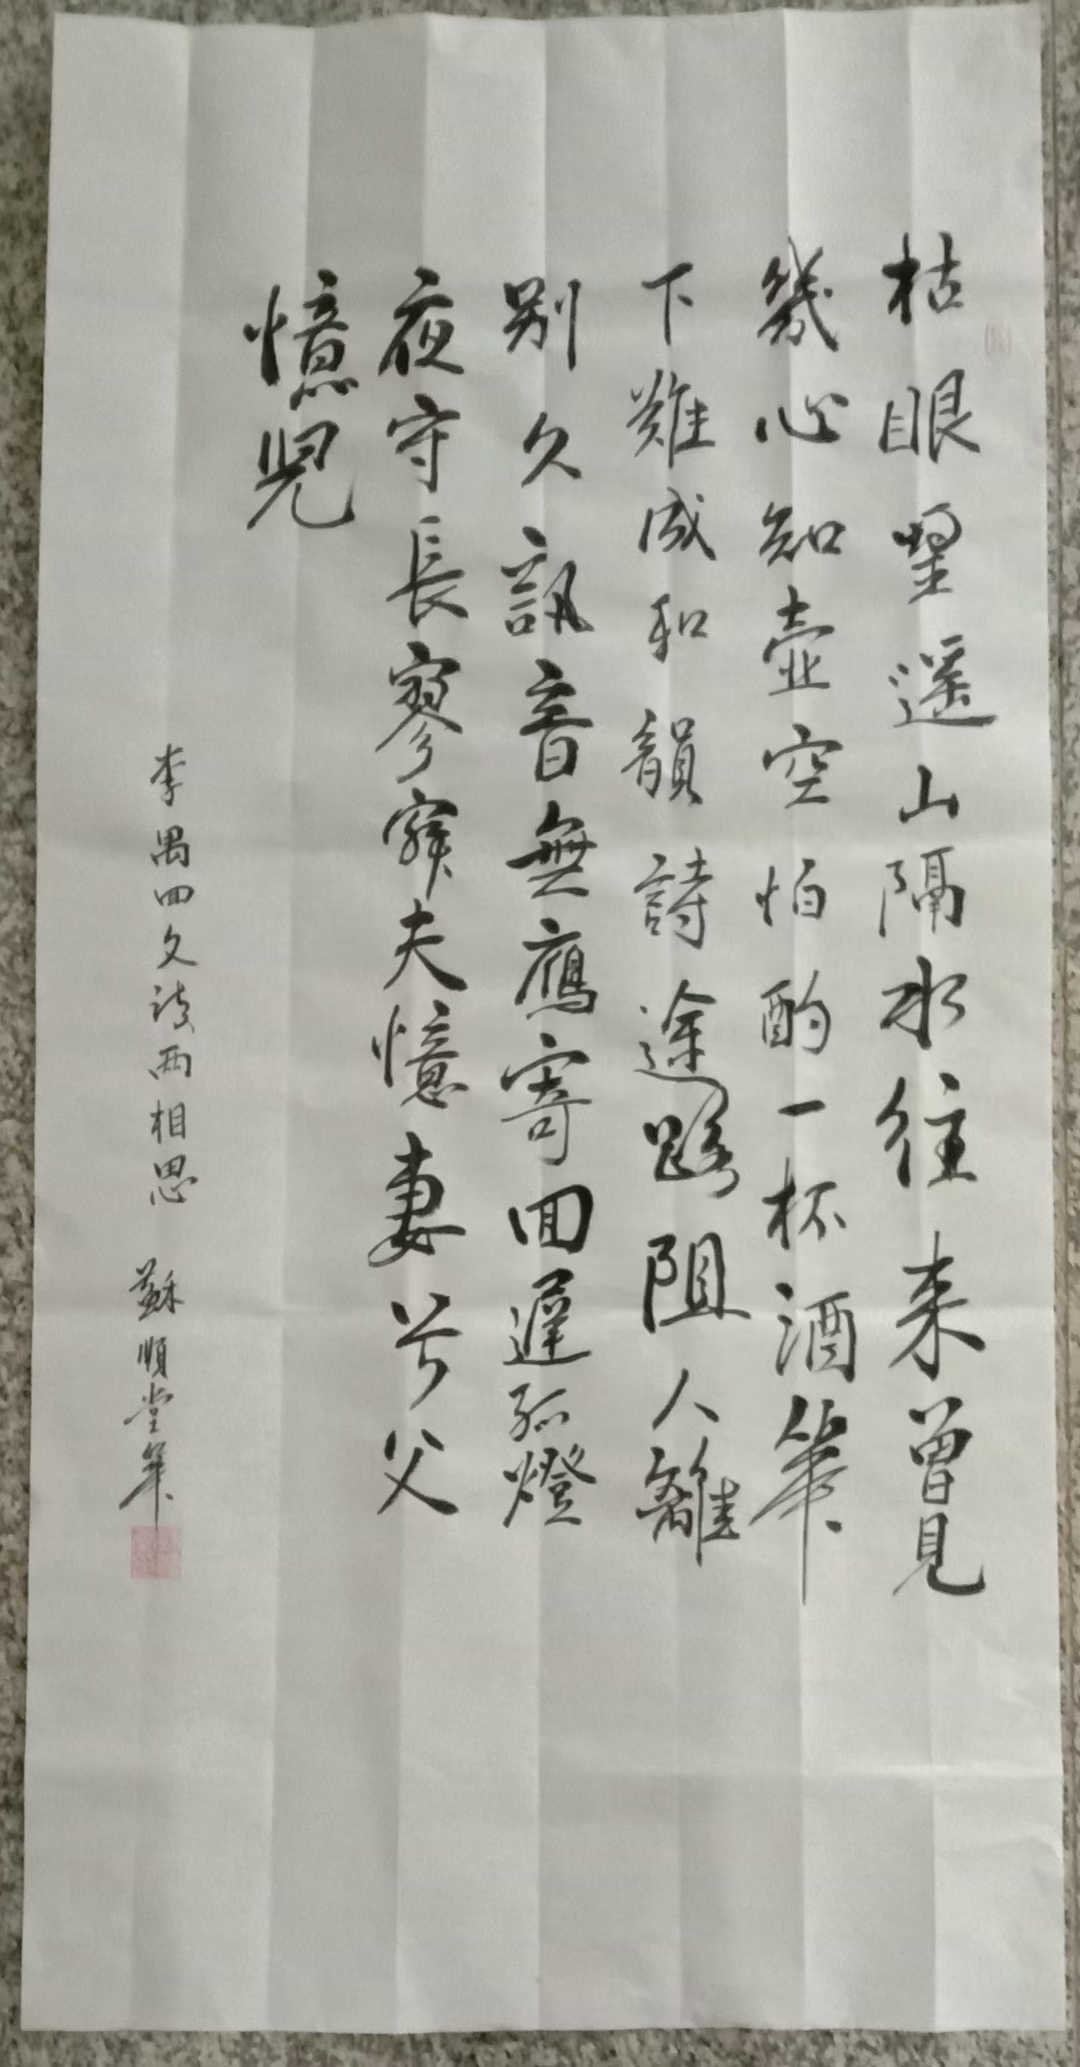 枯眼望遥山隔水往来曾見
幾心知壺空怕酌一杯酒筆
下難成和韻詩途路阻人離
别久訊音無鴈寄回遲孤燈
夜守長寥寂夫憶妻兮父
憶児
李禺回文詩兩相思
蘇順堂筆